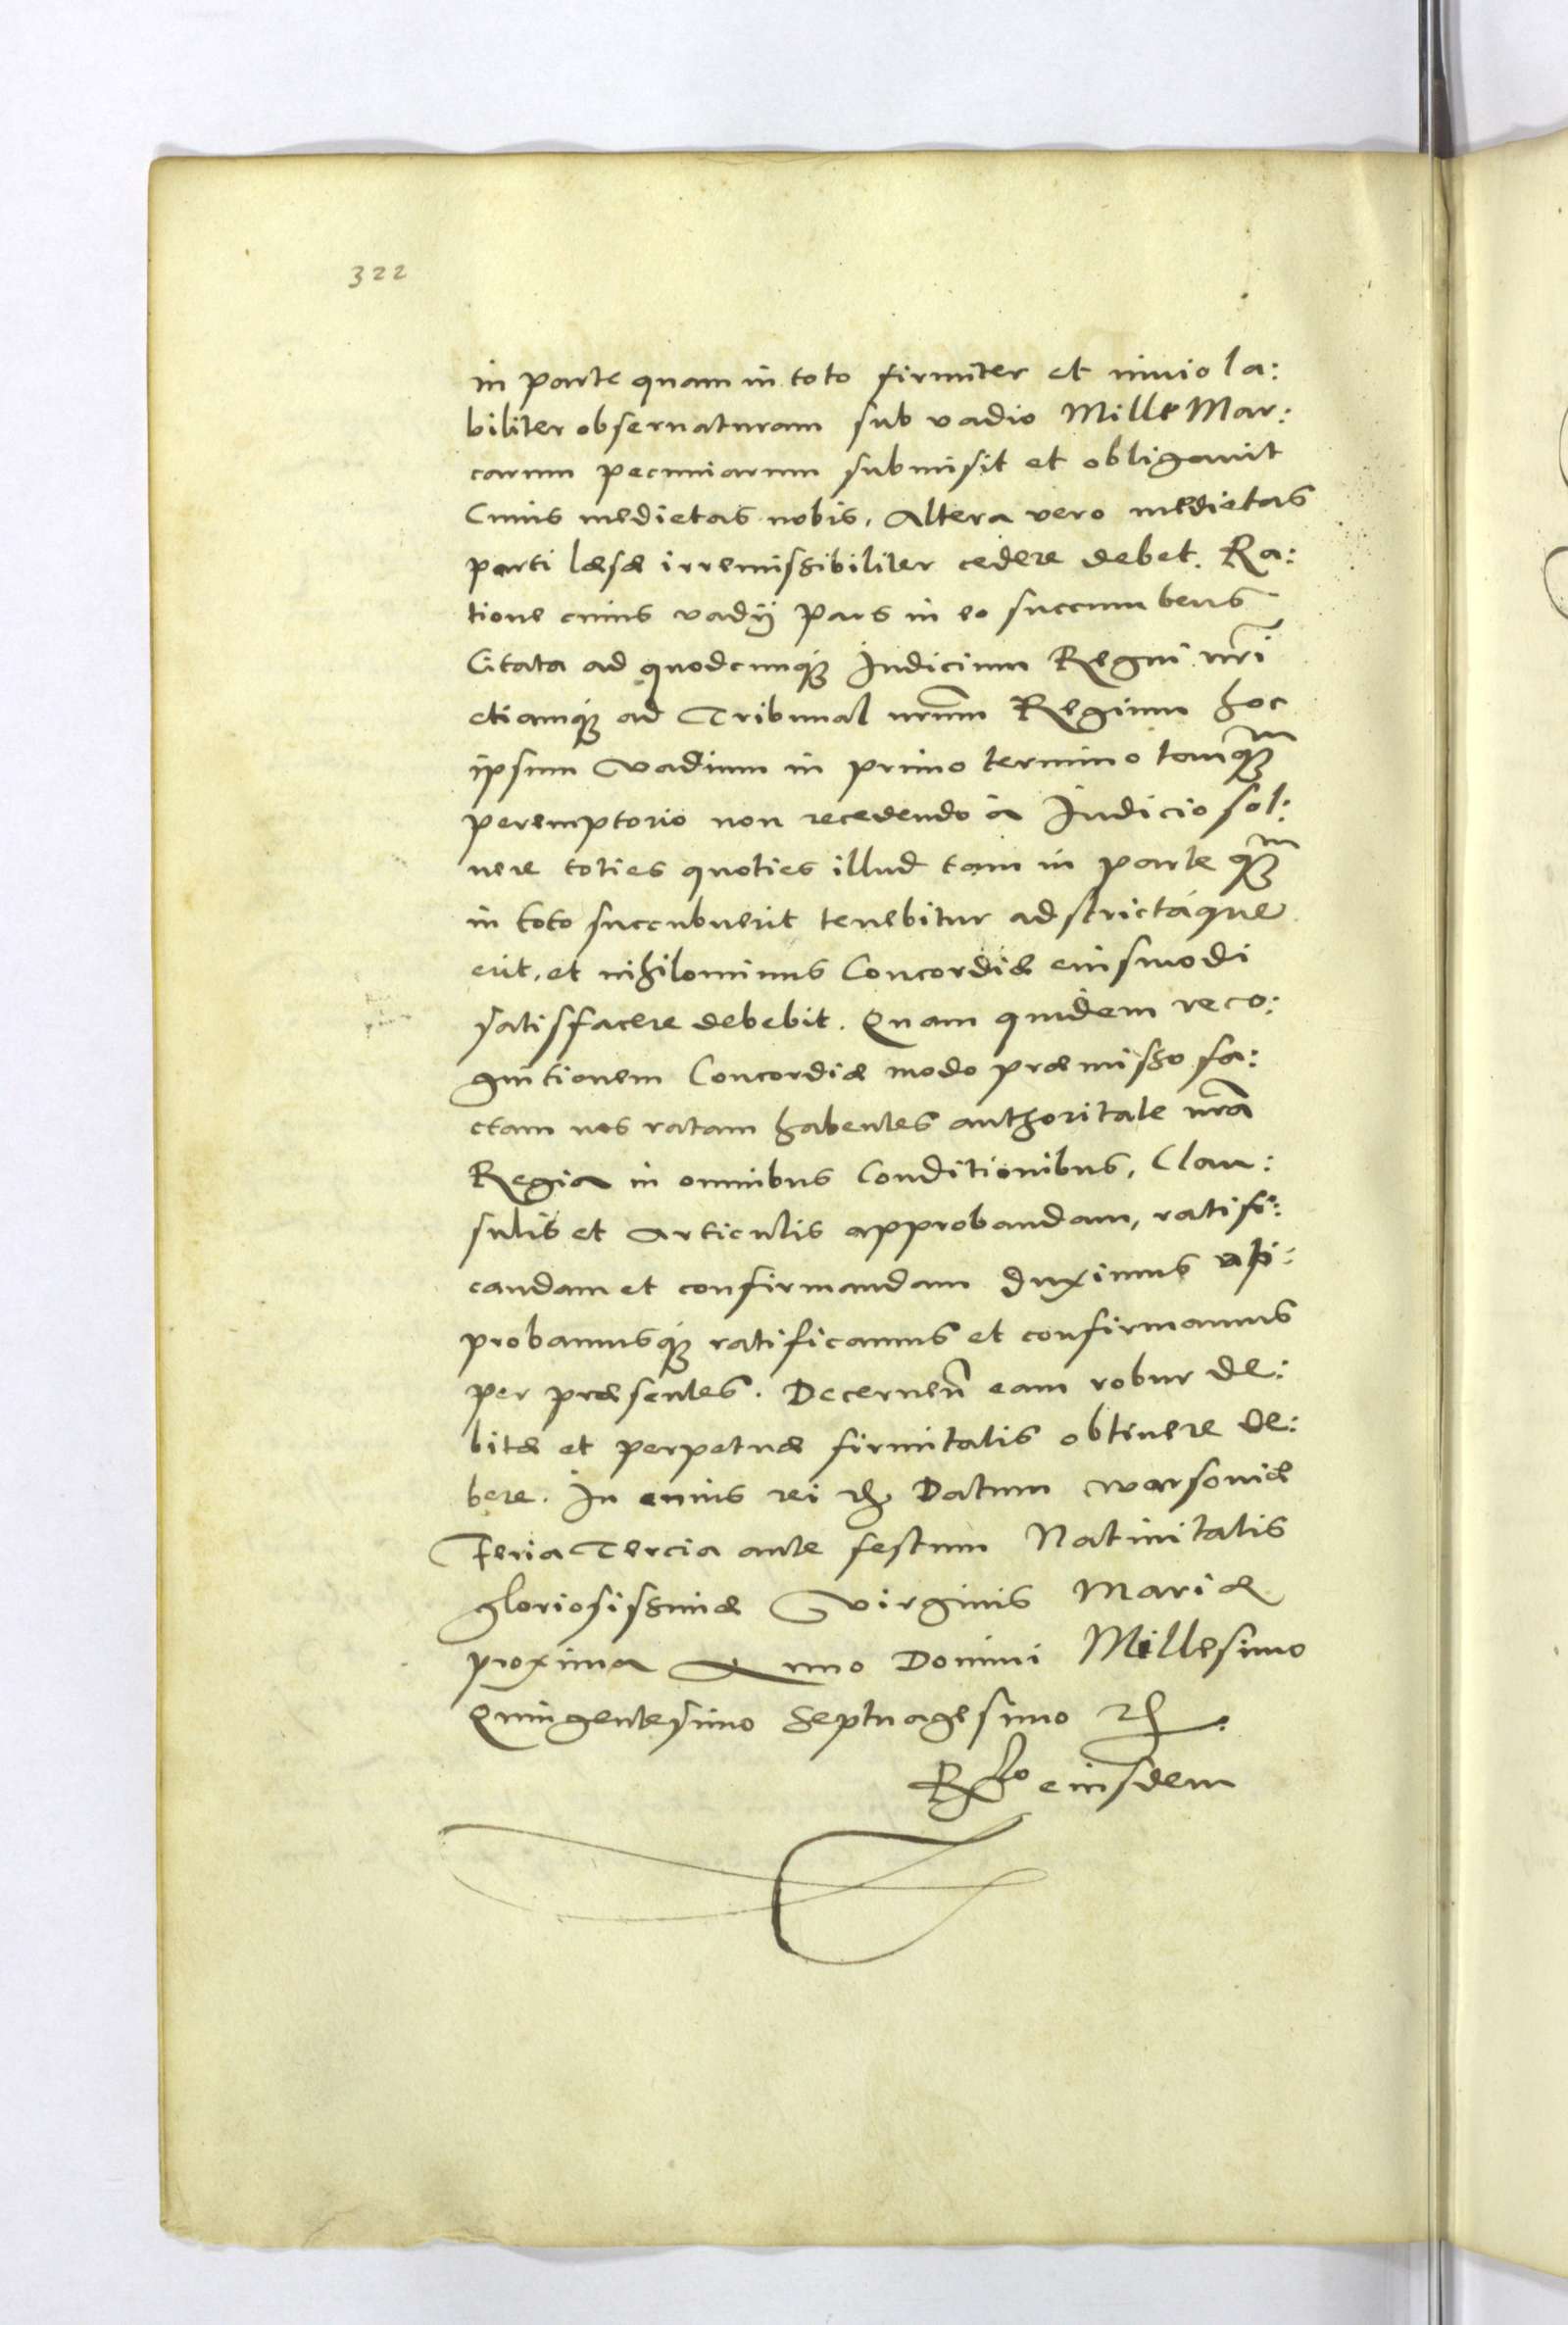 322
in parte quam in toto firmiter et inuiola:
biliter obseruaturam sub vadio Mille Mar:
carum pecuniarum submisit et obligauit
Cuius medietas nobis, Altera vero medietas
parti læsæ irremissibiliter cedere debet. Ra:
tione cuius vadij Pars in eo succumbens
Citata ad quodcunq₃ Iudicium Regni nr̃i
etiamq₃ ad Tribunal nrũm Regium hoc
ipsum vadium in primo termino tanq₃m
peremptorio non recedendo à Iudicio sol:
uere toties quoties illud tam in parte q₃m
in toto succubuerit tenebitur adstrictáque
erit, et nihilominus Concordiæ eiusmodi
satisfacere debebit. Quam quidem reco:
gnitionem Concordiæ modo præmisso fa:
ctam nos ratam habentes authoritate nrã
Regia in omnibus Conditionibus, Clau:
sulis et Articulis approbandam, ratifi:
candam et confirmandam duximus ap:
probamusq₃ ratificamus et confirmamus
per præsentes. Decerneñ eam robur de:
bitæ et perpetuæ firmitatis obtinere de:
bere. In cuius rei ꝛc̃ Datum Warsouiæ
Feria Tercia ante festum Natiuitatis
gloriosissimæ Virginis Mariæ
proxima Anno Domini Millesimo
Quingentesimo Septuagesimo ꝛc̃.
Rꝉo eiusdem